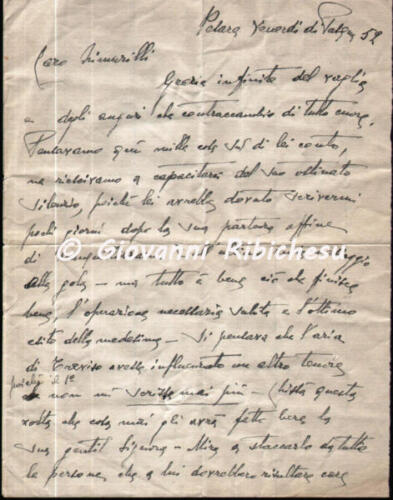 Pesaro Venerdì di Passione 52
Caro Zimarilli
Grazie infinite del vaglia
e degli auguri che contraccambio di tutto cuore.
Pensavamo qui mille cose sul di lei conto,
ne riuscivamo a capacitarci del suo ostinato
silenzio, poiché lei avrebbe dovuto scrivermi
pochi giorni dopo la sua partenza affine
di
© Giovanni Ribichesu
alla gola - ma tutto è bene ciò che finisce
bene, l'operazione necessaria subita e l'ottimo
esito della medesima - Si pensava che l'aria
di Treviso avesse influenzato un altro tenore
poichè il 1º
non mi scrisse mai più - Chissà questa
volta che cosa mai gli avrà fatto bere la
sua gentil Signora - Mira a staccarlo da tutte
le persone che a lui dovrebbero risultare care